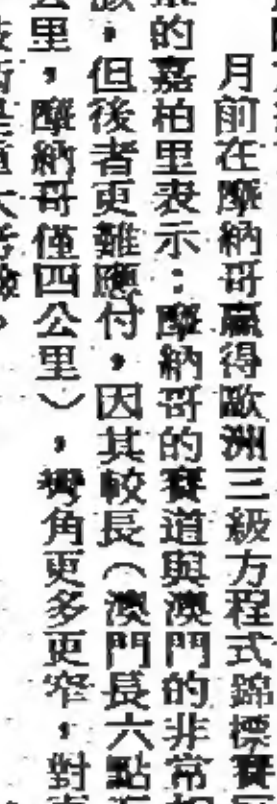 月前在摩納哥贏得歐洲三級方程式錦標賽
的嘉柏里表示：摩納哥的賽道與澳門的非常
，但後者更難應付，因其較長（澳門長六點
里，摩納哥僅四公里），彎角更多更窄，對